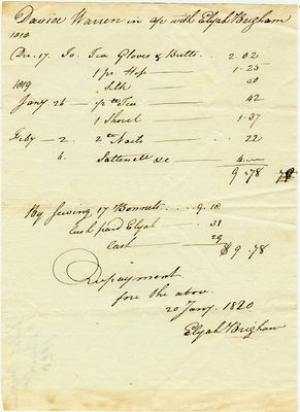 Daniel Warren in a/c with Elijah Brigham
1818
Dec. 17. To. Tea Gloves & Butts .. 2.02
1 pr Hose — 1-25
1819 Silk — 20
Jany 26 — Tea — 42
1 Shovel — 1-37
Feby — 2. Nails — 22
6. Sattinett &c —
9-78
By Sewing 17 Bonnets .... 9.18
Cash paid Elijah — 31
Cash — 29
$9-78
Repayment
for the above
20 Jany. 1820
Elijah Brigham